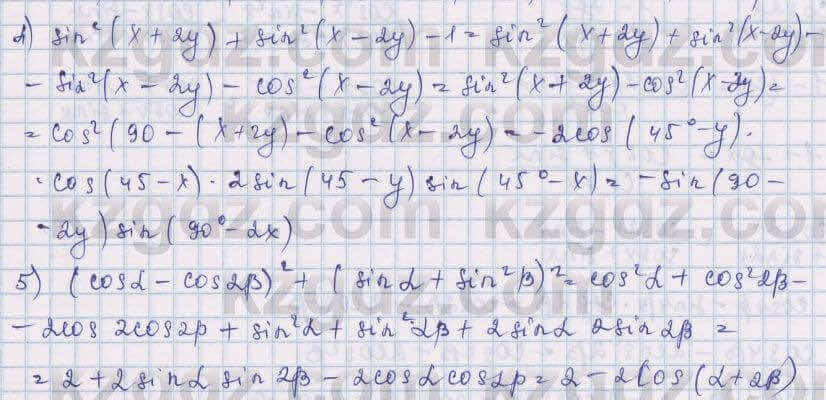 4) sin²(x + 2y) + sin²(x – 2y) – 1 = sin²(x + 2y) + sin²(x – 2y) –
– sin²(x – 2y) – cos²(x – 2y) = sin²(x + 2y) – cos²(x – 2y) =
= cos²(90 – (x + 2y) – cos²(x – 2y) = – 2cos(45° – y) ·
· cos(45 – x) · 2sin(45 – y) sin(45° – x) = – sin(90 –
– 2y) sin(90° – 2x)
5) (cosα – cos2β)² + (sinα + sin²β)² = cos²α + cos²2β –
– 2cos 2cos2β + sin²α + sin²2β + 2sinα 2sin2β =
= 2 + 2sinα sin2β – 2cosα cos2β = 2 – 2cos(α + 2β)
kzgdz.com
kzgdz.com
kzgdz.com
kzgdz.com
kzgdz.com